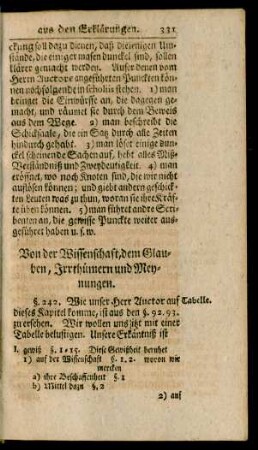 aus den Erklärungen. 331
ckung soll dazu dienen, daß diejenigen Um-
stände, die einiger masen dunckel sind, sollen
klärer gemacht werden. Auser denen vom
Herrn Auctore angeführten Punckten können
noch folgende in scholiis stehen. 1) man
bringet die Einwürffe an, die dagegen ge-
macht, und räumet sie durch den Beweis
aus dem Wege. 2) man beschreibt die
Schicksaale, die ein Satz durch alle Zeiten
hindurch gehabt. 3) man löset einige dun-
ckel scheinende Sachen auf, hebt alles Miß-
Verständniß und Zweydeutigkeit. 4) man
eröfnet, wo noch Knoten sind, die wir nicht
auflösen können; und giebt andern geschick-
ten Leuten was zu thun, woran sie ihre Kräf-
te üben können. 5) man führet andre Scri-
benten an, die gewisse Punckte weiter aus-
geführet haben u. s. w.
Von der Wissenschaft, dem Glau-
ben, Irrthümern und Mey-
nungen.
§. 242. Wie unser Herr Auctor auf Tabelle.
dieses Kapitel komme, ist aus den §. 92. 93.
zu ersehen. Wir wollen uns itzt mit einer
Tabelle belustigen. Unsere Erkäntniß ist
I. gewiß §. 1-15. Diese Gewißheit beruhet
1) auf der Wissenschaft §. 1. 2. woron wir
mercken
a) ihre Beschaffenheit §. 1
b) Mittel dazu §. 2
2) auf